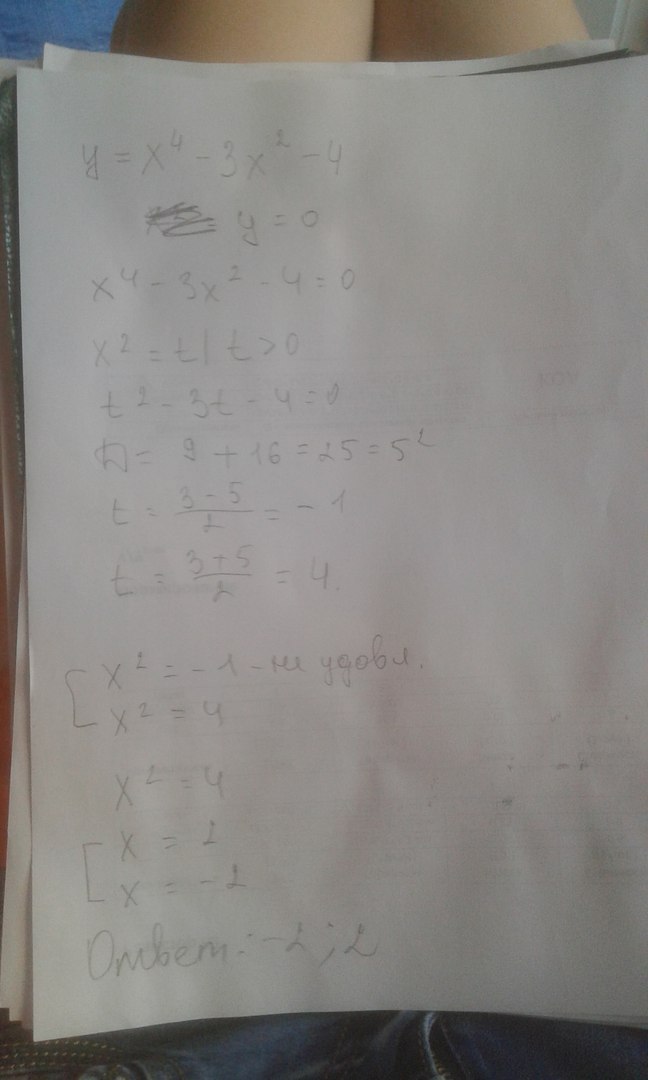 y = x⁴ - 3x² - 4
y = 0
x⁴ - 3x² - 4 = 0
x² = t | t > 0
t² - 3t - 4 = 0
D = 9 + 16 = 25 = 5²
t = (3 - 5)/2 = -1
t = (3 + 5)/2 = 4.
[ x² = -1 - не удовл.
x² = 4
x² = 4
[ x = 2
x = -2
Ответ: -2 ; 2